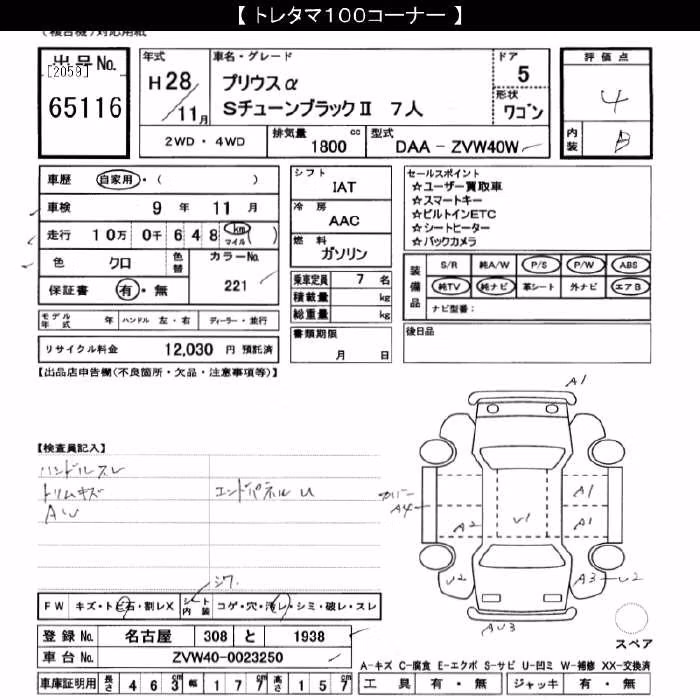 【 トレタマ１００コーナー 】
(複合機)対応用紙
出品No.
[2059]
65116
年式
H28/11月
車名・グレード
プリウスα
SチューンブラックⅡ 7人
ドア
5
形状
ワゴン
評価点
4
内装
B
2WD・4WD
排気量 1800 cc
型式 DAA - ZVW40W
車歴 自家用・( )
車検 9 年 11 月
走行 10万 0千 648 km マイル ( )
色 クロ
色替
カラーNo.
221
保証書 有・無
モデル年式 年 ハンドル 左・右 ディーラー・並行
リサイクル料金 12,030 円 預託済
シフト
IAT
冷房
AAC
燃料
ガソリン
乗車定員 7 名
積載量 kg
総重量 kg
書類期限
月 日
セールスポイント
☆ユーザー買取車
☆スマートキー
☆ビルトインETC
☆シートヒーター
☆バックカメラ
装備品
S/R 純A/W P/S P/W ABS
純TV 純ナビ 革シート 外ナビ エアB
ナビ型番：
後日品
【出品店申告欄(不良箇所・欠品・注意事項等)】
【検査員記入】
ハンドルスレ
トリムキズ エンドパネルU
AW
シワ
FW キズ・トビ石・割レX
シート内装 コゲ・穴・汚レ・シミ・破レ・スレ
登録No. 名古屋 308 と 1938
車台No. ZVW40-0023250
車庫証明用 長さ 463cm 幅 177cm 高さ 157cm
A1
カバー
A4
A2
U1
A1
A1
U2
A3
U2
AU3
スペア
A-キズ C-腐食 E-エクボ S-サビ U-凹ミ W-補修 XX-交換済
工具 有・無 ジャッキ 有・無